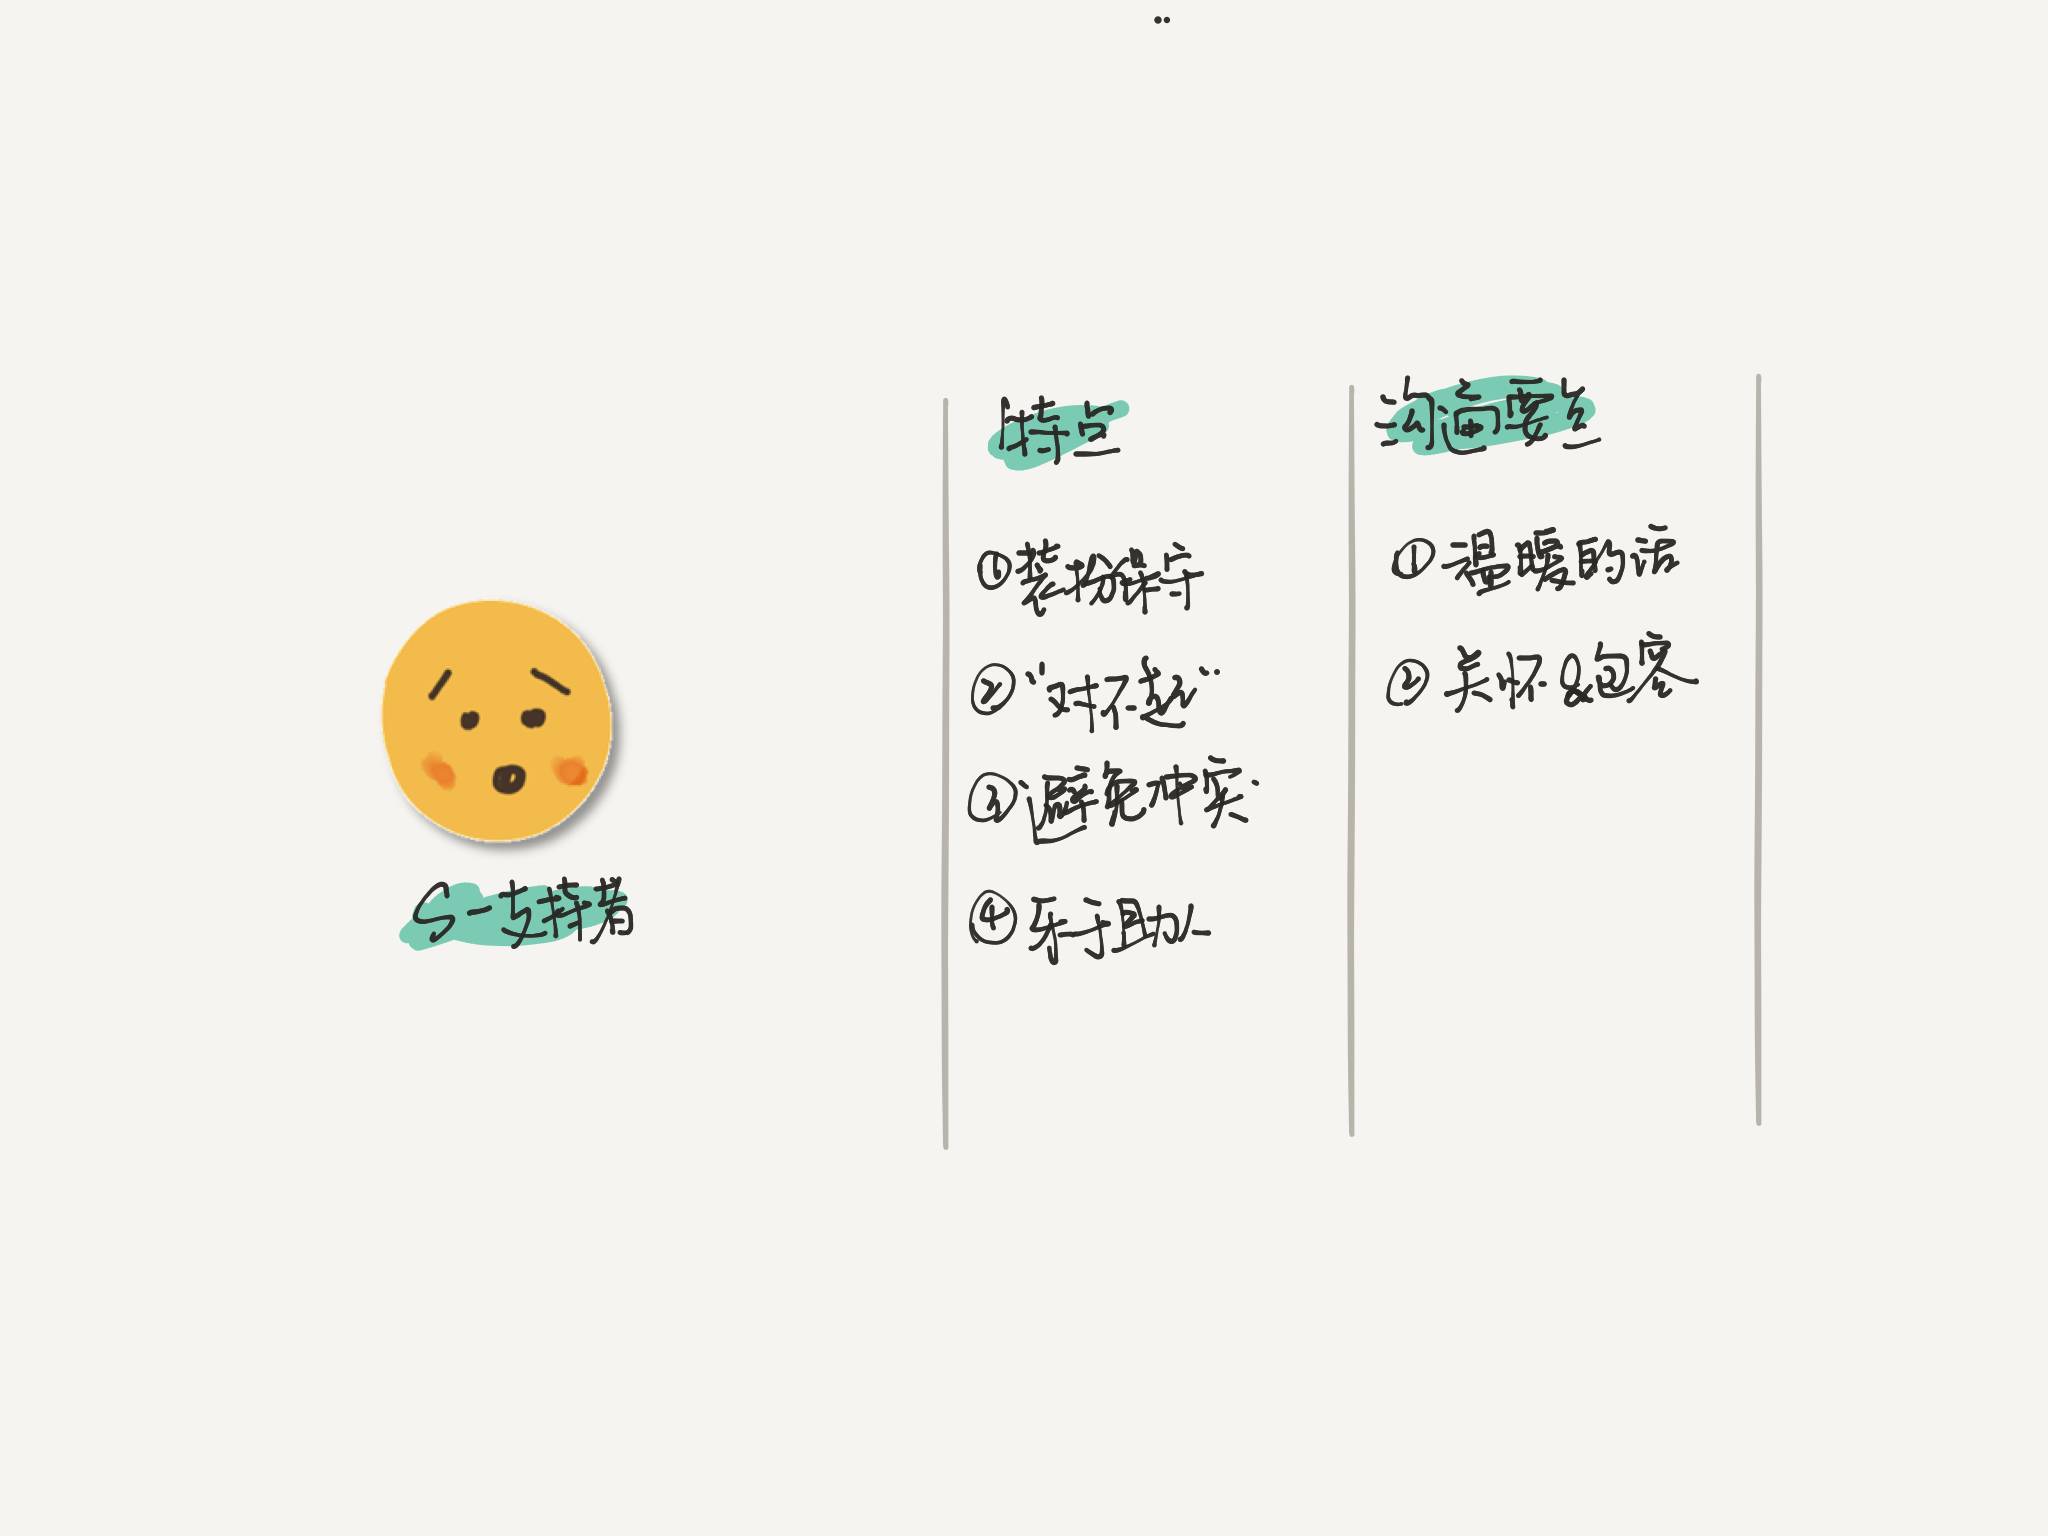 S-支持者
特点
①装扮保守
②“对不起”
③避免冲突.
④乐于助人
沟通要点
①温暖的话
②关怀&包容